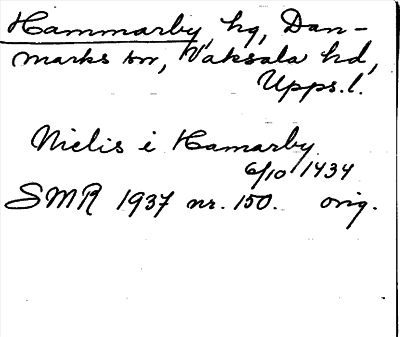 Hammarby, hg, Dan-
marks sn, Vaksala hd,
Upps. l.
Nielis i Hamarby
6/10 1434
SMR 1937 nr. 150. orig.